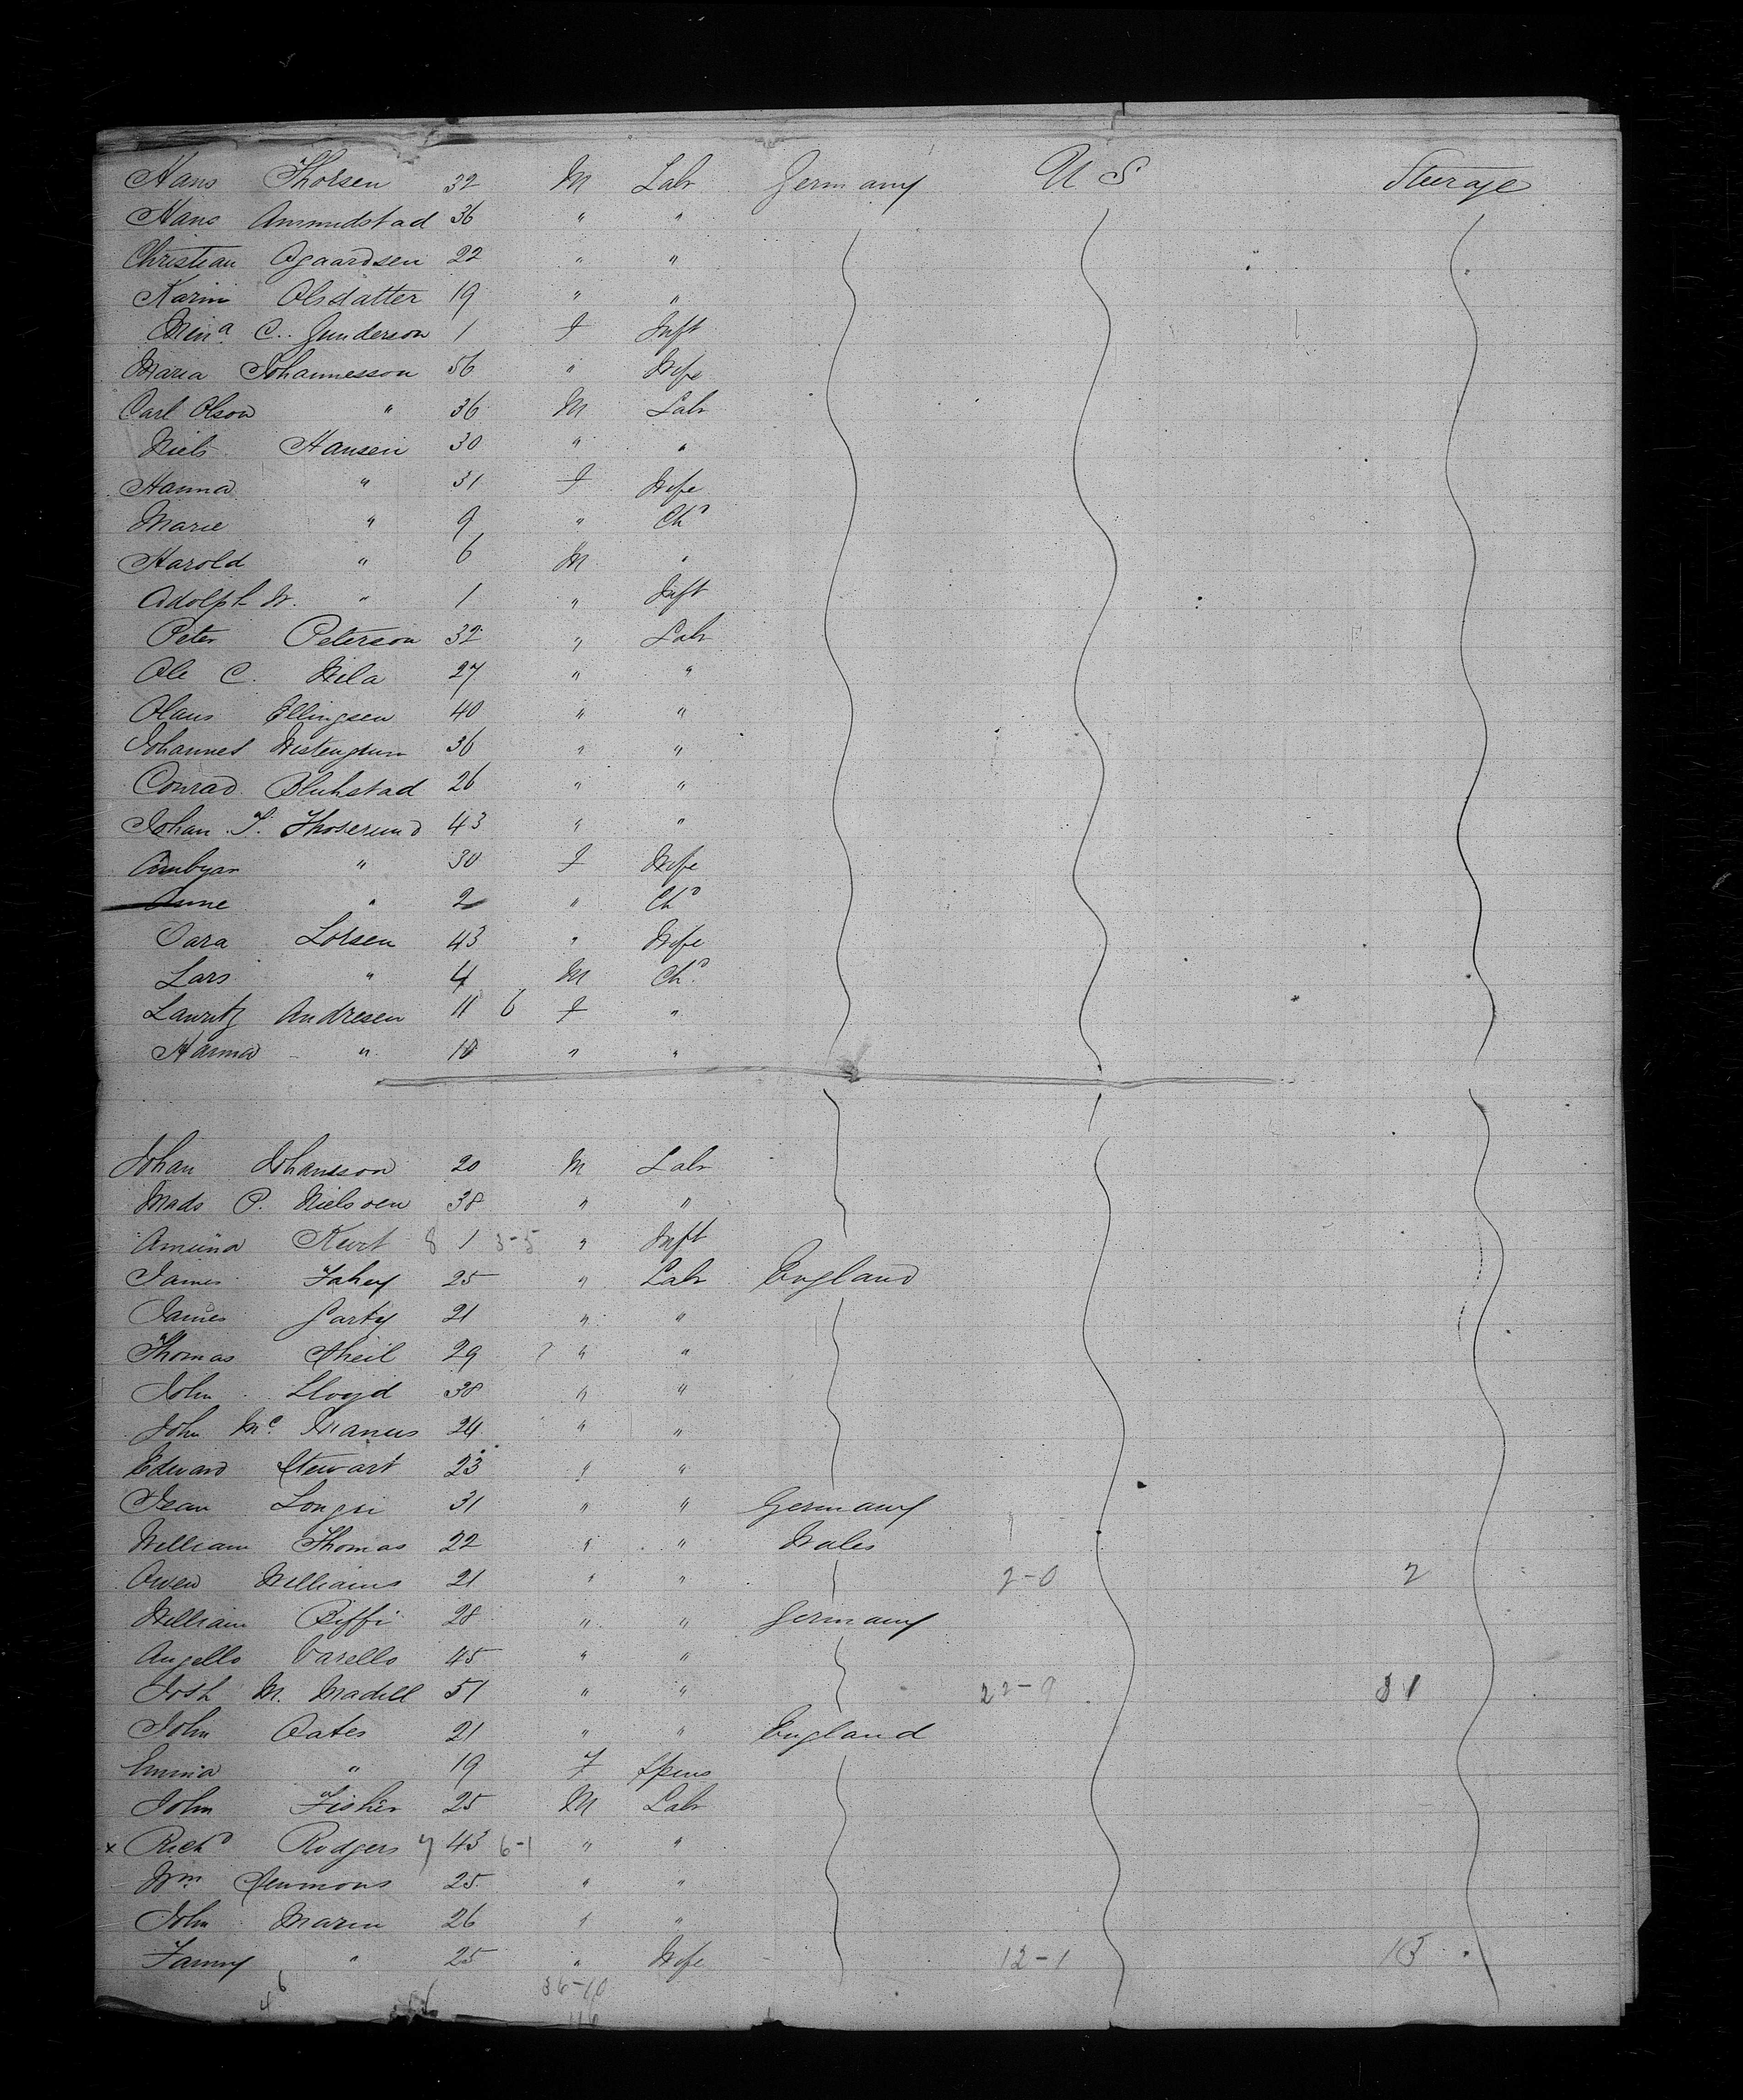 Hans Thorsen 32 M Labr Germany U S Steerage
Hans Ammudstad 36 " "
Christian Agaardsen 22 " "
Karin Olsdatter 19 " "
Mina C. Gunderson 1 F Inft
Maria Johannesson 56 " Wife
Carl Olson " 36 M Labr
Niels Hansen 30 " "
Hanna " 31 F Wife
Marie " 9 " Chd
Harold " 6 M "
Adolph W. " 1 " Inft
Peter Peterson 32 " Labr
Ole C. Nila 27 " "
Olaus Ellingsen 40 " "
Johannes 36 " "
Conrad Bluhstad 26 " "
Johan T. Thoserund 43 " "
Ambyar " 30 F Wife
Anne " 2 " Chd
Sara Lorsen 43 " Wife
Lars " 4 M Chd
Lauritz Andresen 11 6 F "
Hanna " 10 " "
Johan Johansson 20 M Labr
Mads P. Nielsen 38 " "
Kurt 8 1 3-5 " Inft
James Fahey 25 " Labr England
James Garty 21 " "
Thomas Sheil 29 " "
John Lloyd 38 " "
John Mc Manus 24 " "
Edward Stewart 23 " "
Jean Longri 31 " " Germany
William Thomas 22 " " Wales
Owen Williams 21 " " 2-0 2
William Biffi 28 " " Germany
Angello Varello 45 " "
Josh M. Madill 51 " " 22-9 31
John Oates 21 " " England
Emma " 19 F Spins
John Fisher 25 M Labr
x Richd Rodgers 7 43 6-1 " "
Wm Semmons 25 " "
John Marin 26 " "
Fanny " 25 " Wife 12-1 13
46 36-10
46